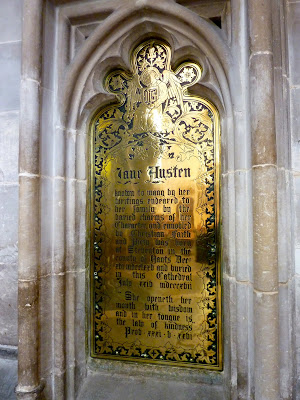 Jane Austen
known to many by her
writings endeared to
her family by the
varied charms of her
Character and ennobled
by Christian faith
and piety was born
at Steventon in the
county of Hants Dec
and buried
in this Cathedral
July xxiv mdcccxvii
She openeth her
mouth with wisdom
and in her tongue is
the law of kindness
Prov xxxi v xxvi